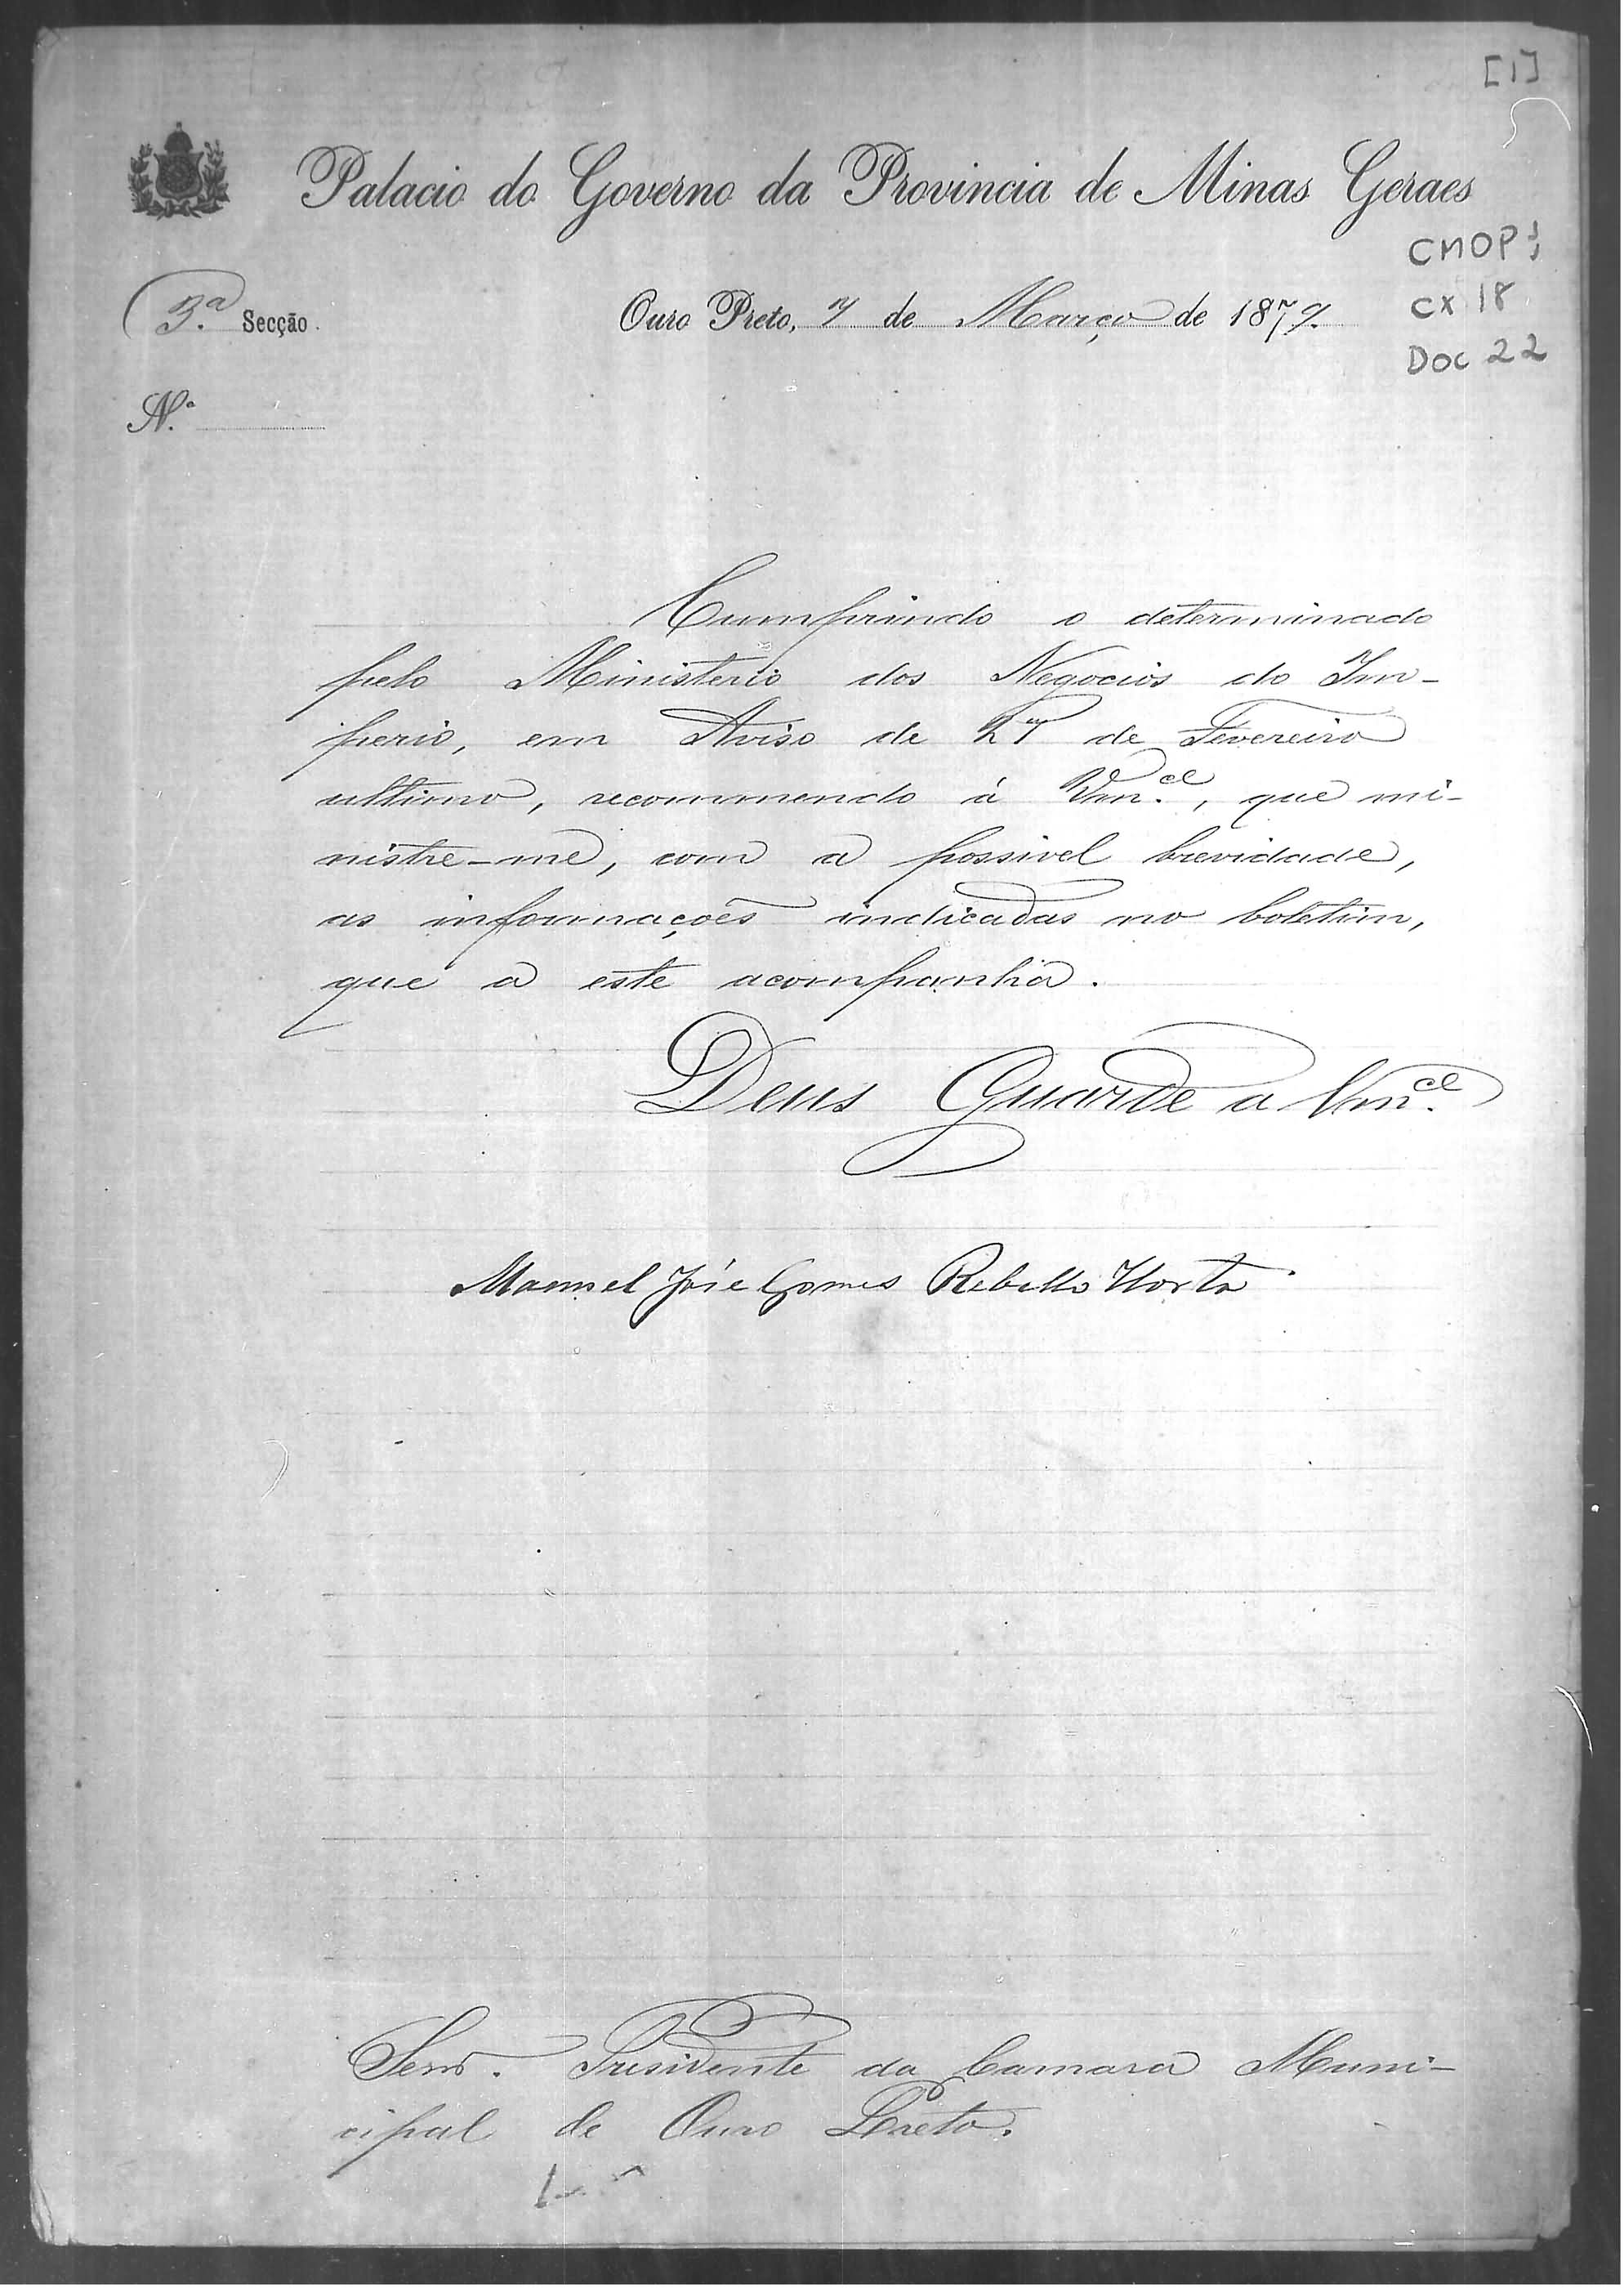 [1]
Palacio do Governo da Provincia de Minas Geraes
CMOP
CX 18
DOC 22
3.ª Secção.
Ouro Preto, 7 de Março de 1879.
N.º
Cumprindo o determinado
pelo Ministerio dos Negocios do Im-
perio, em Aviso de 27 de Fevereiro
ultimo, recommendo á Vm.ce, que mi-
nistre-me, com a possivel brevidade,
as informações indicadas no boletim,
que a este acompanha.
Deus Guarde a Vm.ce
Manoel José Gomes Rebello Horta
Senr. Presidente da Camara Muni-
cipal de Ouro Preto.